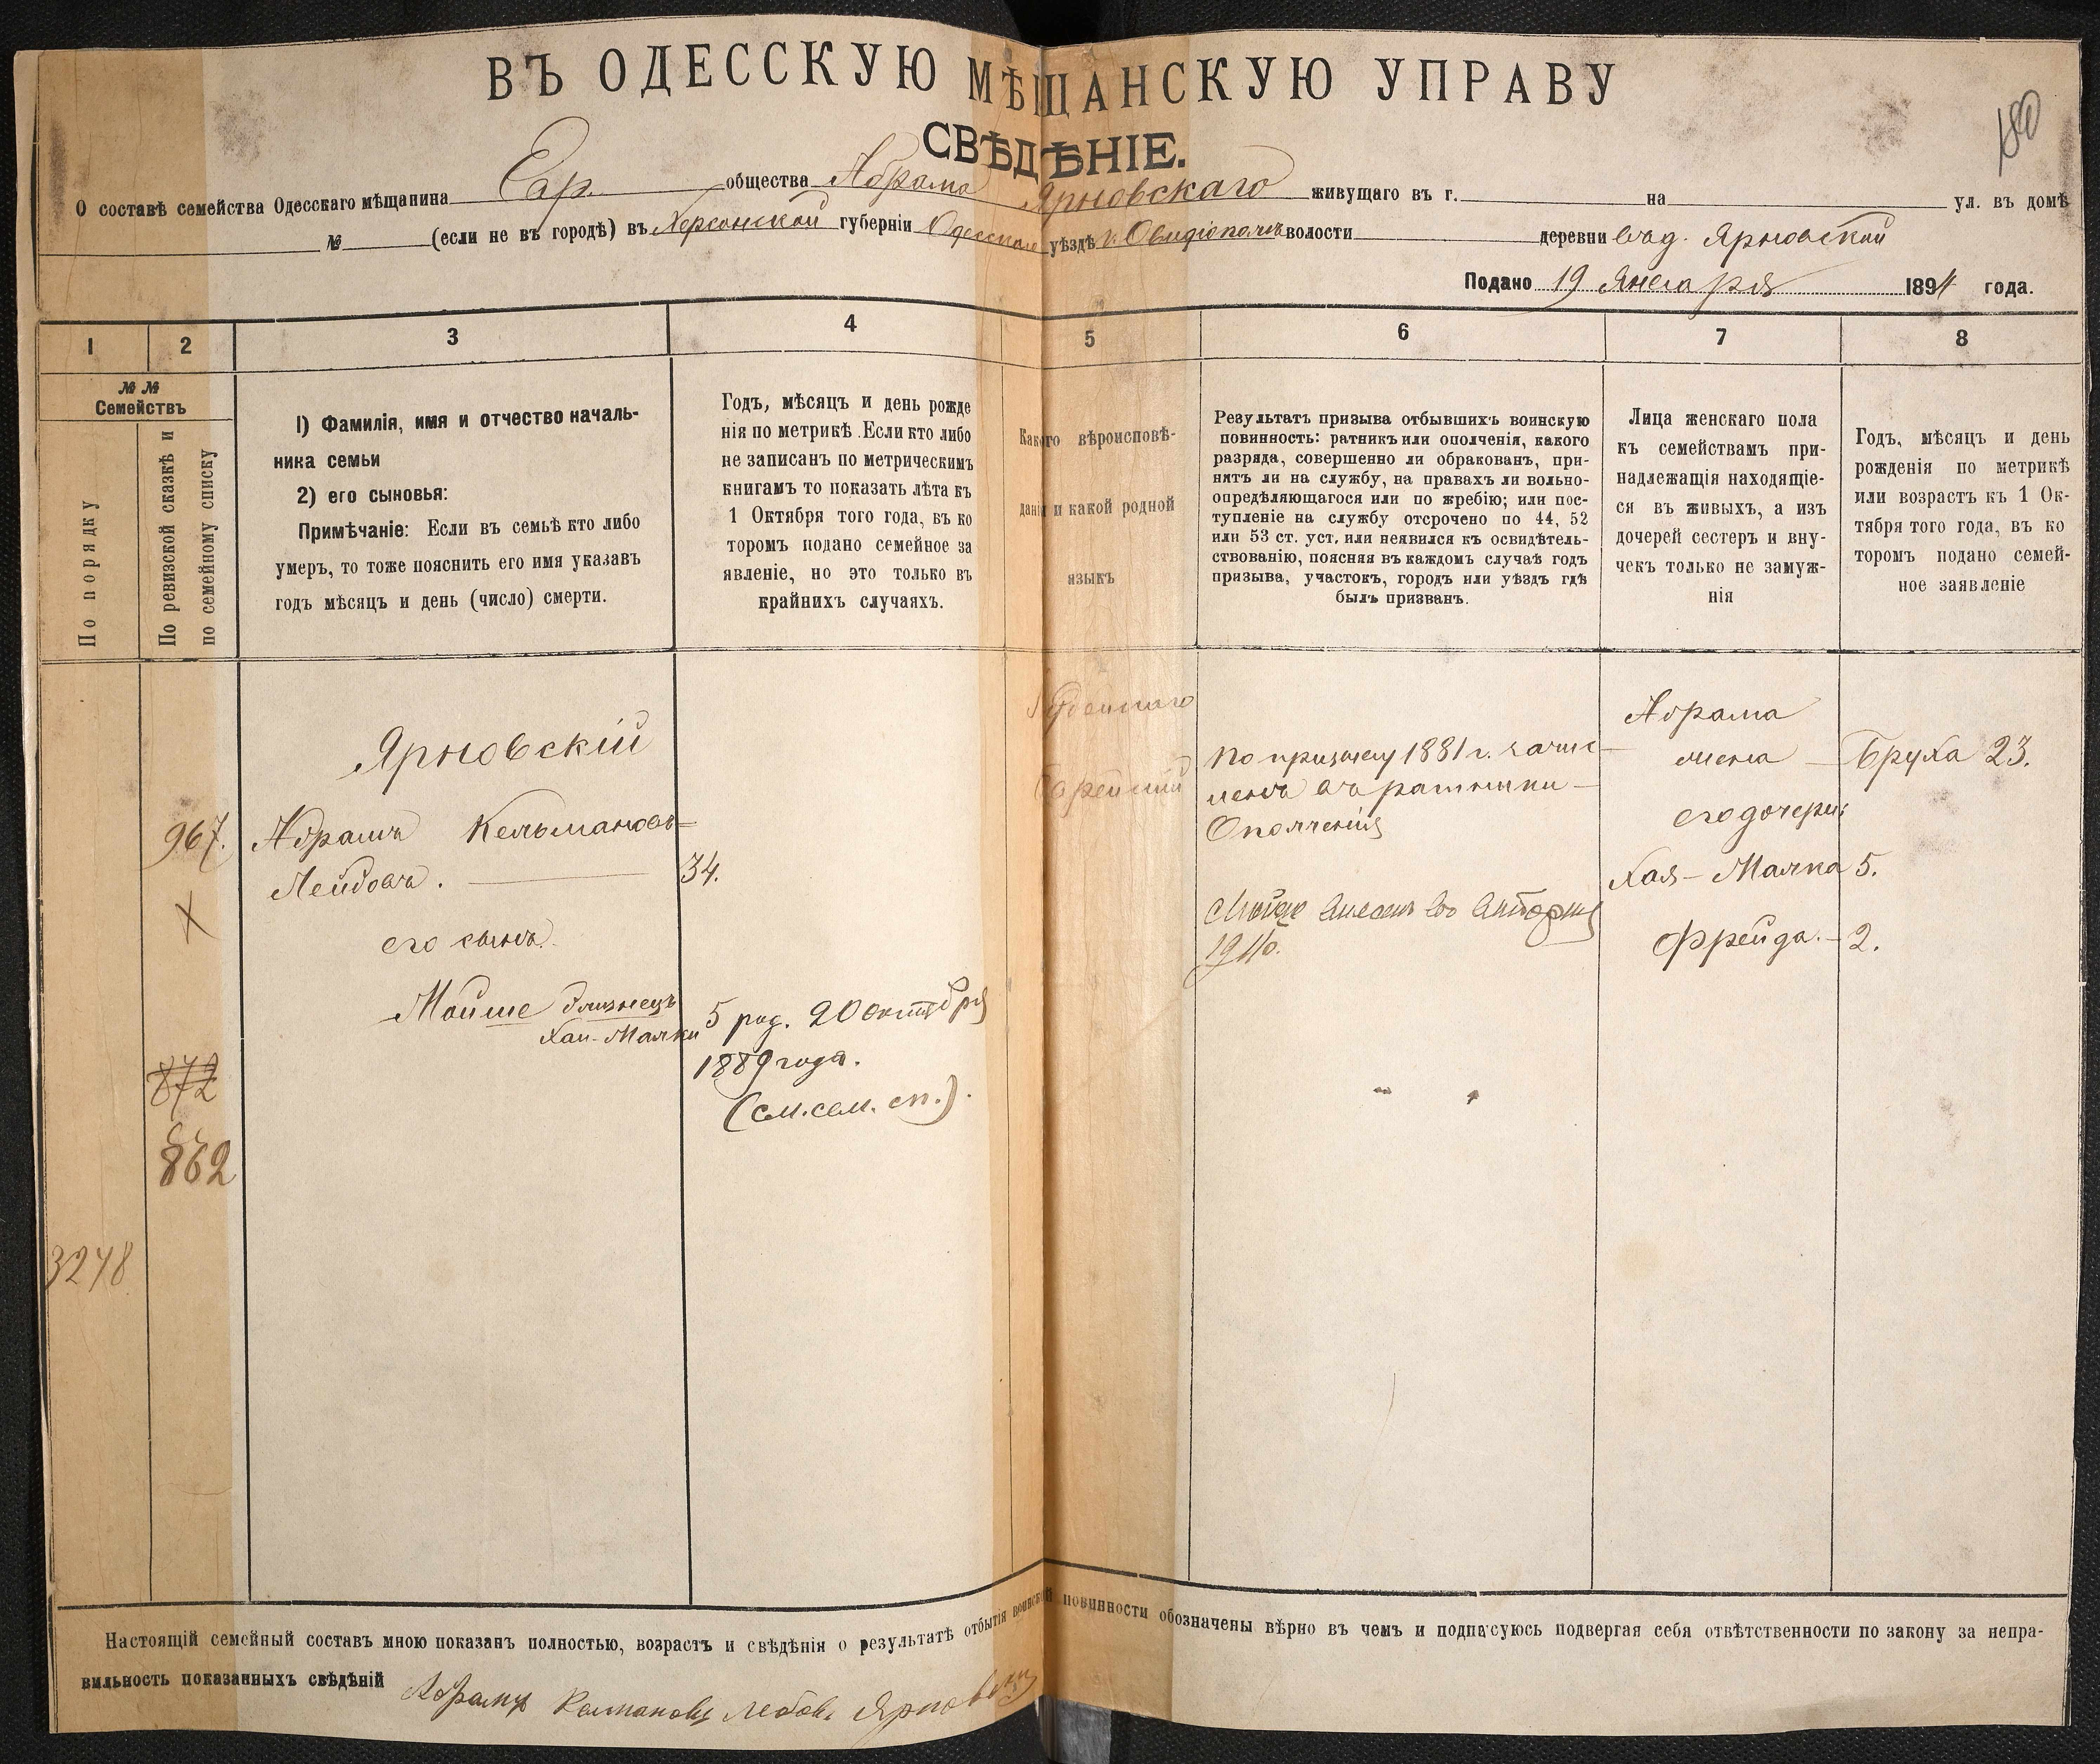 ВЪ ОДЕССКУЮ МѢЩАНСКУЮ УПРАВУ
СВѢДѢНІЕ.
180
О составѣ семейства Одесскаго мѣщанина Евр. общества Абрама Ярновскаго живущаго въ г. на ул. въ домѣ
№ (если не въ городѣ) въ Херсонской губерніи Одесскомъ уѣздѣ г. Овидіополь волости деревни Ярновской
Подано 19 Января 1894 года.
1 2 3 4 5 6 7 8
№ №
Семействъ
По порядку
По ревизской сказкѣ и
по семейному списку
1) Фамилія, имя и отчество началь-
ника семьи
2) его сыновья:
Примѣчаніе: Если въ семьѣ кто либо
умеръ, то тоже пояснить его имя указавъ
годъ мѣсяцъ и день (число) смерти.
Годъ, мѣсяцъ и день рожде
нія по метрикѣ. Если кто либо
не записанъ по метрическимъ
книгамъ то показать лѣта къ
1 Октября того года, въ ко
торомъ подано семейное за
явленіе, но это только въ
крайнихъ случаяхъ.
Какого вѣроисповѣ-
данія и какой родной
языкъ
Результатъ призыва отбывшихъ воинскую
повинность: ратникъ или ополченія, какого
разряда, совершенно ли обракованъ, при-
нятъ ли на службу, на правахъ ли вольно-
опредѣляющагося или по жребію; или пос-
тупленіе на службу отсрочено по 44, 52
или 53 ст. уст. или неявился къ освидѣтель-
ствованію, поясняя въ каждомъ случаѣ годъ
призыва, участокъ, городъ или уѣздъ гдѣ
былъ призванъ.
Лица женскаго пола
къ семействамъ при-
надлежащія находящіе-
ся въ живыхъ, а изъ
дочерей сестеръ и вну-
чекъ только не замуж-
нія
Годъ, мѣсяцъ и день
рожденія по метрикѣ
или возрастъ къ 1 Ок-
тября того года, въ ко
торомъ подано семей-
ное заявленіе
Ярновскій
967. Абрамъ Кельмановъ
Лейбовъ. 34.
его сынъ
Мойше близнецъ
Хаи-Малки
5 род. 20 октября
1889 года.
(см. сем. сп.).
872
862
3248
Іудейскаго
Еврейскій
По призыву 1881 г. зачис-
ленъ въ ратники
Ополченія
Абрама
жена Бруха 23.
его дочери:
Хая-Малка 5.
Фрейда. 2.
Настоящій семейный составъ мною показанъ полностью, возрастъ и свѣдѣнія о результатѣ отбытія воинской повинности обозначены вѣрно въ чемъ и подписуюсь подвергая себя отвѣтственности по закону за непра-
вильность показанныхъ свѣдѣній Абрамъ Калмановъ Лебовъ Ярновскій